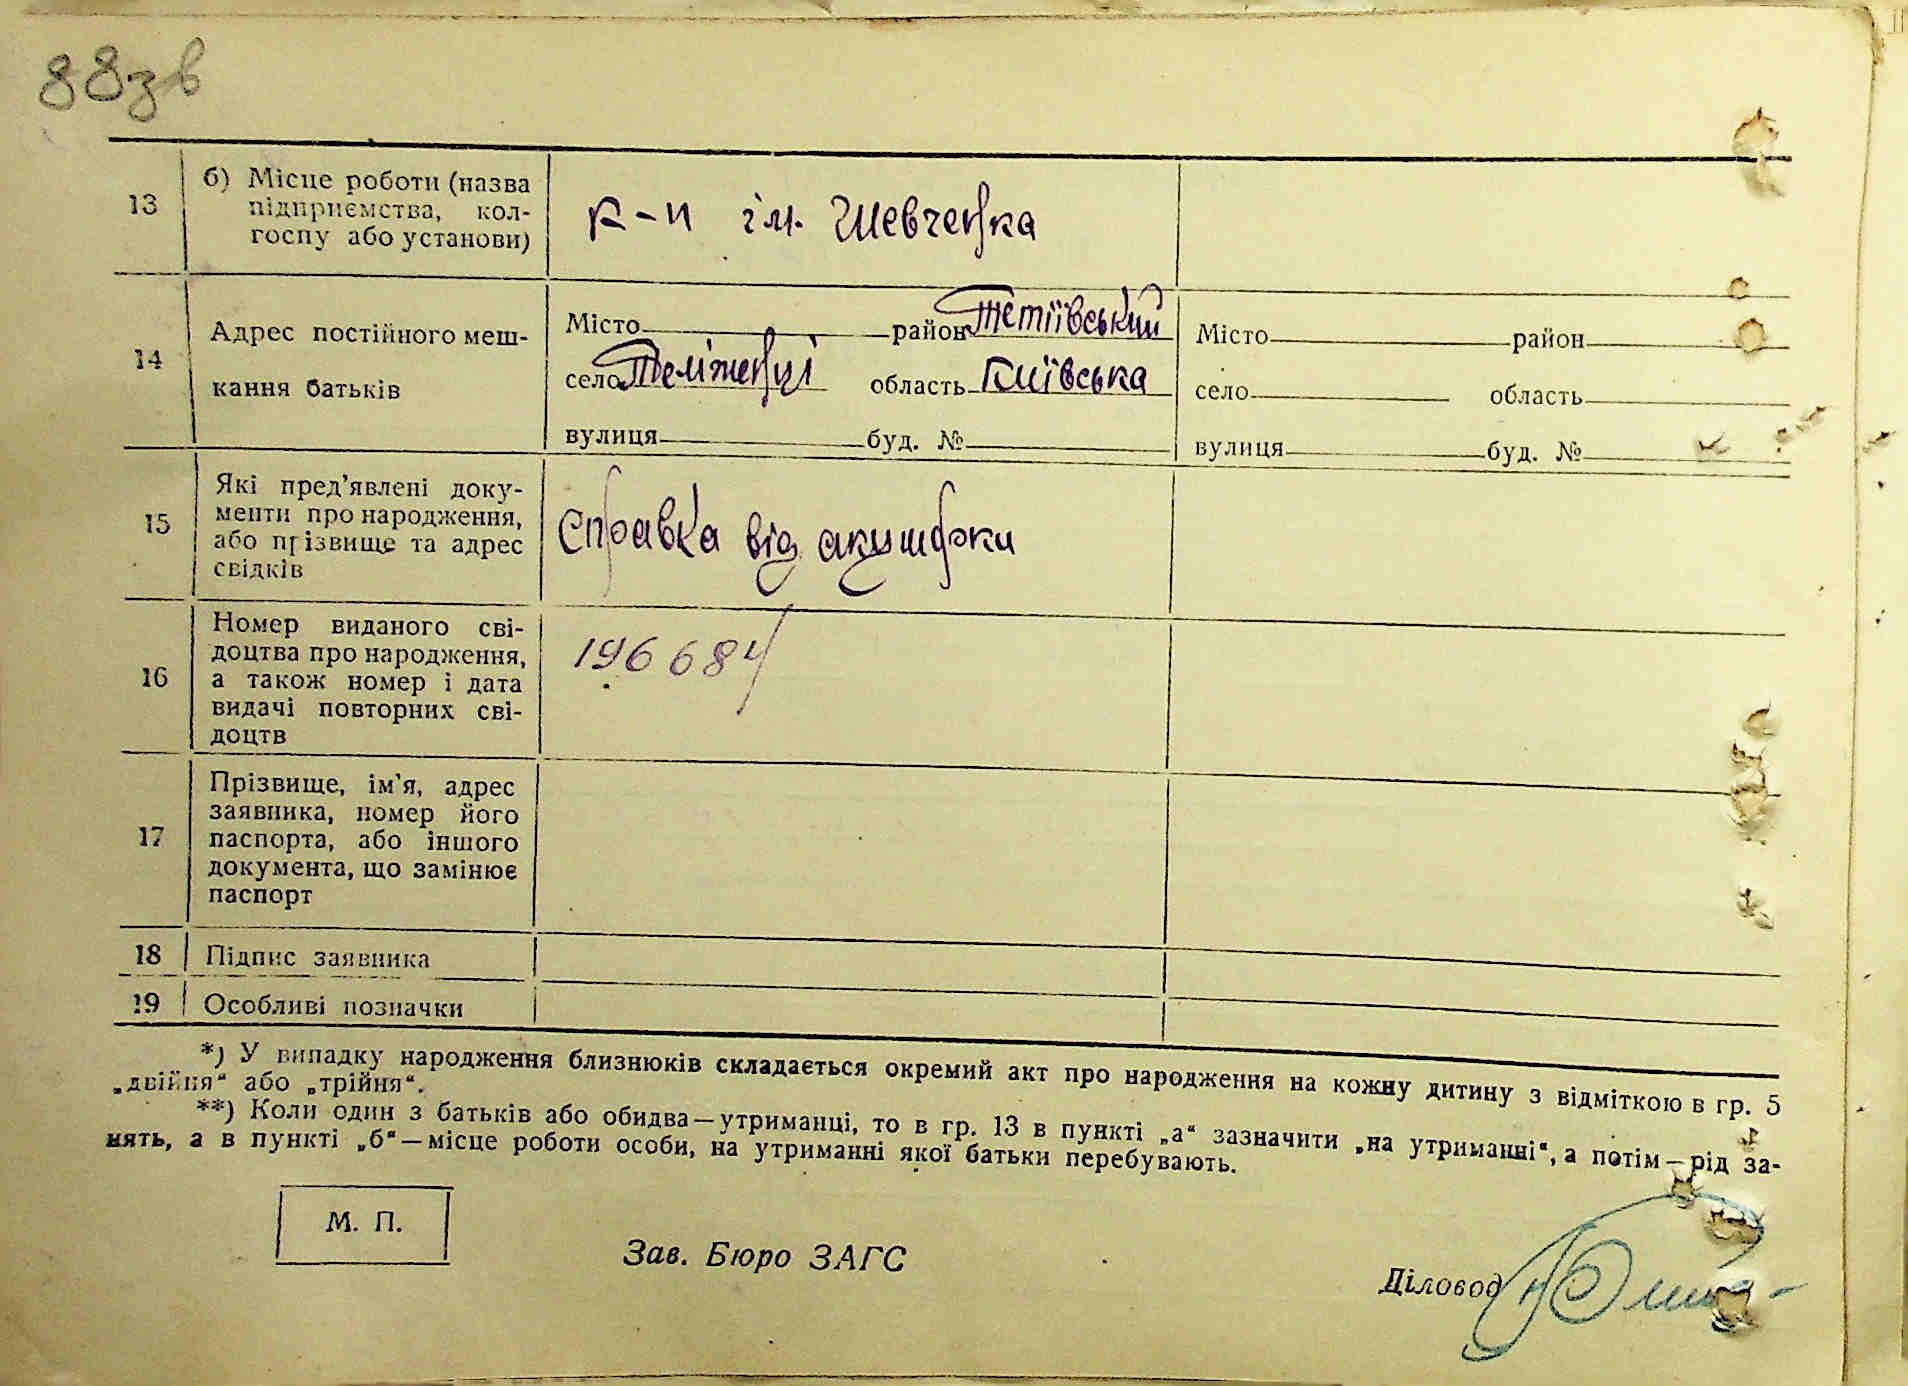 88зв
13
б) Місце роботи (назва
підприємства, кол-
госпу або установи)
к-п ім. Шевченка
14
Адрес постійного меш-
кання батьків
Місто район Тетіївський
село Теліженці область Київська
вулиця буд. №
Місто район
село область
вулиця буд. №
15
Які пред'явлені доку-
менти про народження,
або прізвище та адрес
свідків
Справка від акушорки
16
Номер виданого сві-
доцтва про народження,
а також номер і дата
видачі повторних сві-
доцтв
196684
17
Прізвище, ім'я, адрес
заявника, номер його
паспорта, або іншого
документа, що замінює
паспорт
18 Підпис заявника
19 Особливі позначки
*) У випадку народження близнюків складається окремий акт про народження на кожну дитину з відміткою в гр. 5
„двійня“ або „трійня“.
**) Коли один з батьків або обидва—утриманці, то в гр. 13 в пункті „а“ зазначити „на утриманні“, а потім—рід за-
нять, а в пункті „б“—місце роботи особи, на утриманні якої батьки перебувають.
М. П.
Зав. Бюро ЗАГС
Діловод